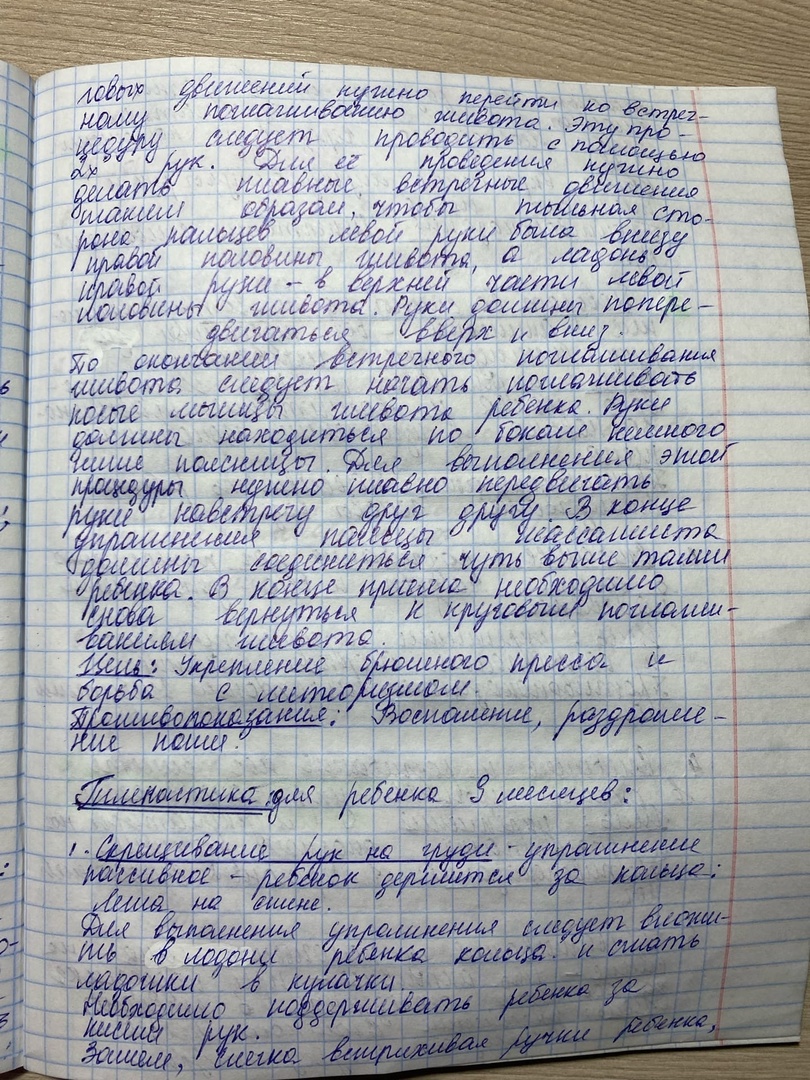 говых движений нужно перейти ко встреч-
ному поглаживанию живота. Эту про-
цедуру следует проводить с помощью
2х рук. Для её проведения нужно
делать плавные встречные движения
таким образом, чтобы тыльная сто-
рона пальцев левой руки была внизу
правой половины живота, а ладонь
правой руки - в верхней части левой
половины живота. Руки должны попере-
двигаться вверх и вниз.
По окончании встречного поглаживания
живота следует начать поглаживать
косые мышцы живота ребенка. Руки
должны находиться по бокам немного
ниже поясницы. Для выполнения этой
процедуры нужно плавно передвигать
руки навстречу друг другу. В конце
упражнения пальцы массажиста
должны соединиться чуть выше талии
ребенка. В конце приема необходимо
снова вернуться к круговым поглажи-
ванием живота.
Цель: Укрепление брюшного пресса и
борьба с метеоризмом.
Противопоказания: Воспаление, раздраже-
ние кожи.
Гимнастика: для ребенка 9 месяцев:
1. Скрещивание рук на груди - упражнение
пассивное - ребенок держится за кольца:
Лежа на спине.
Для выполнения упражнения следует вложи-
ть в ладони ребенка кольца и сжать
ладошки в кулачки.
Необходимо поддерживать ребенка за
кисти рук.
Затем, слегка встряхивая ручки ребенка,